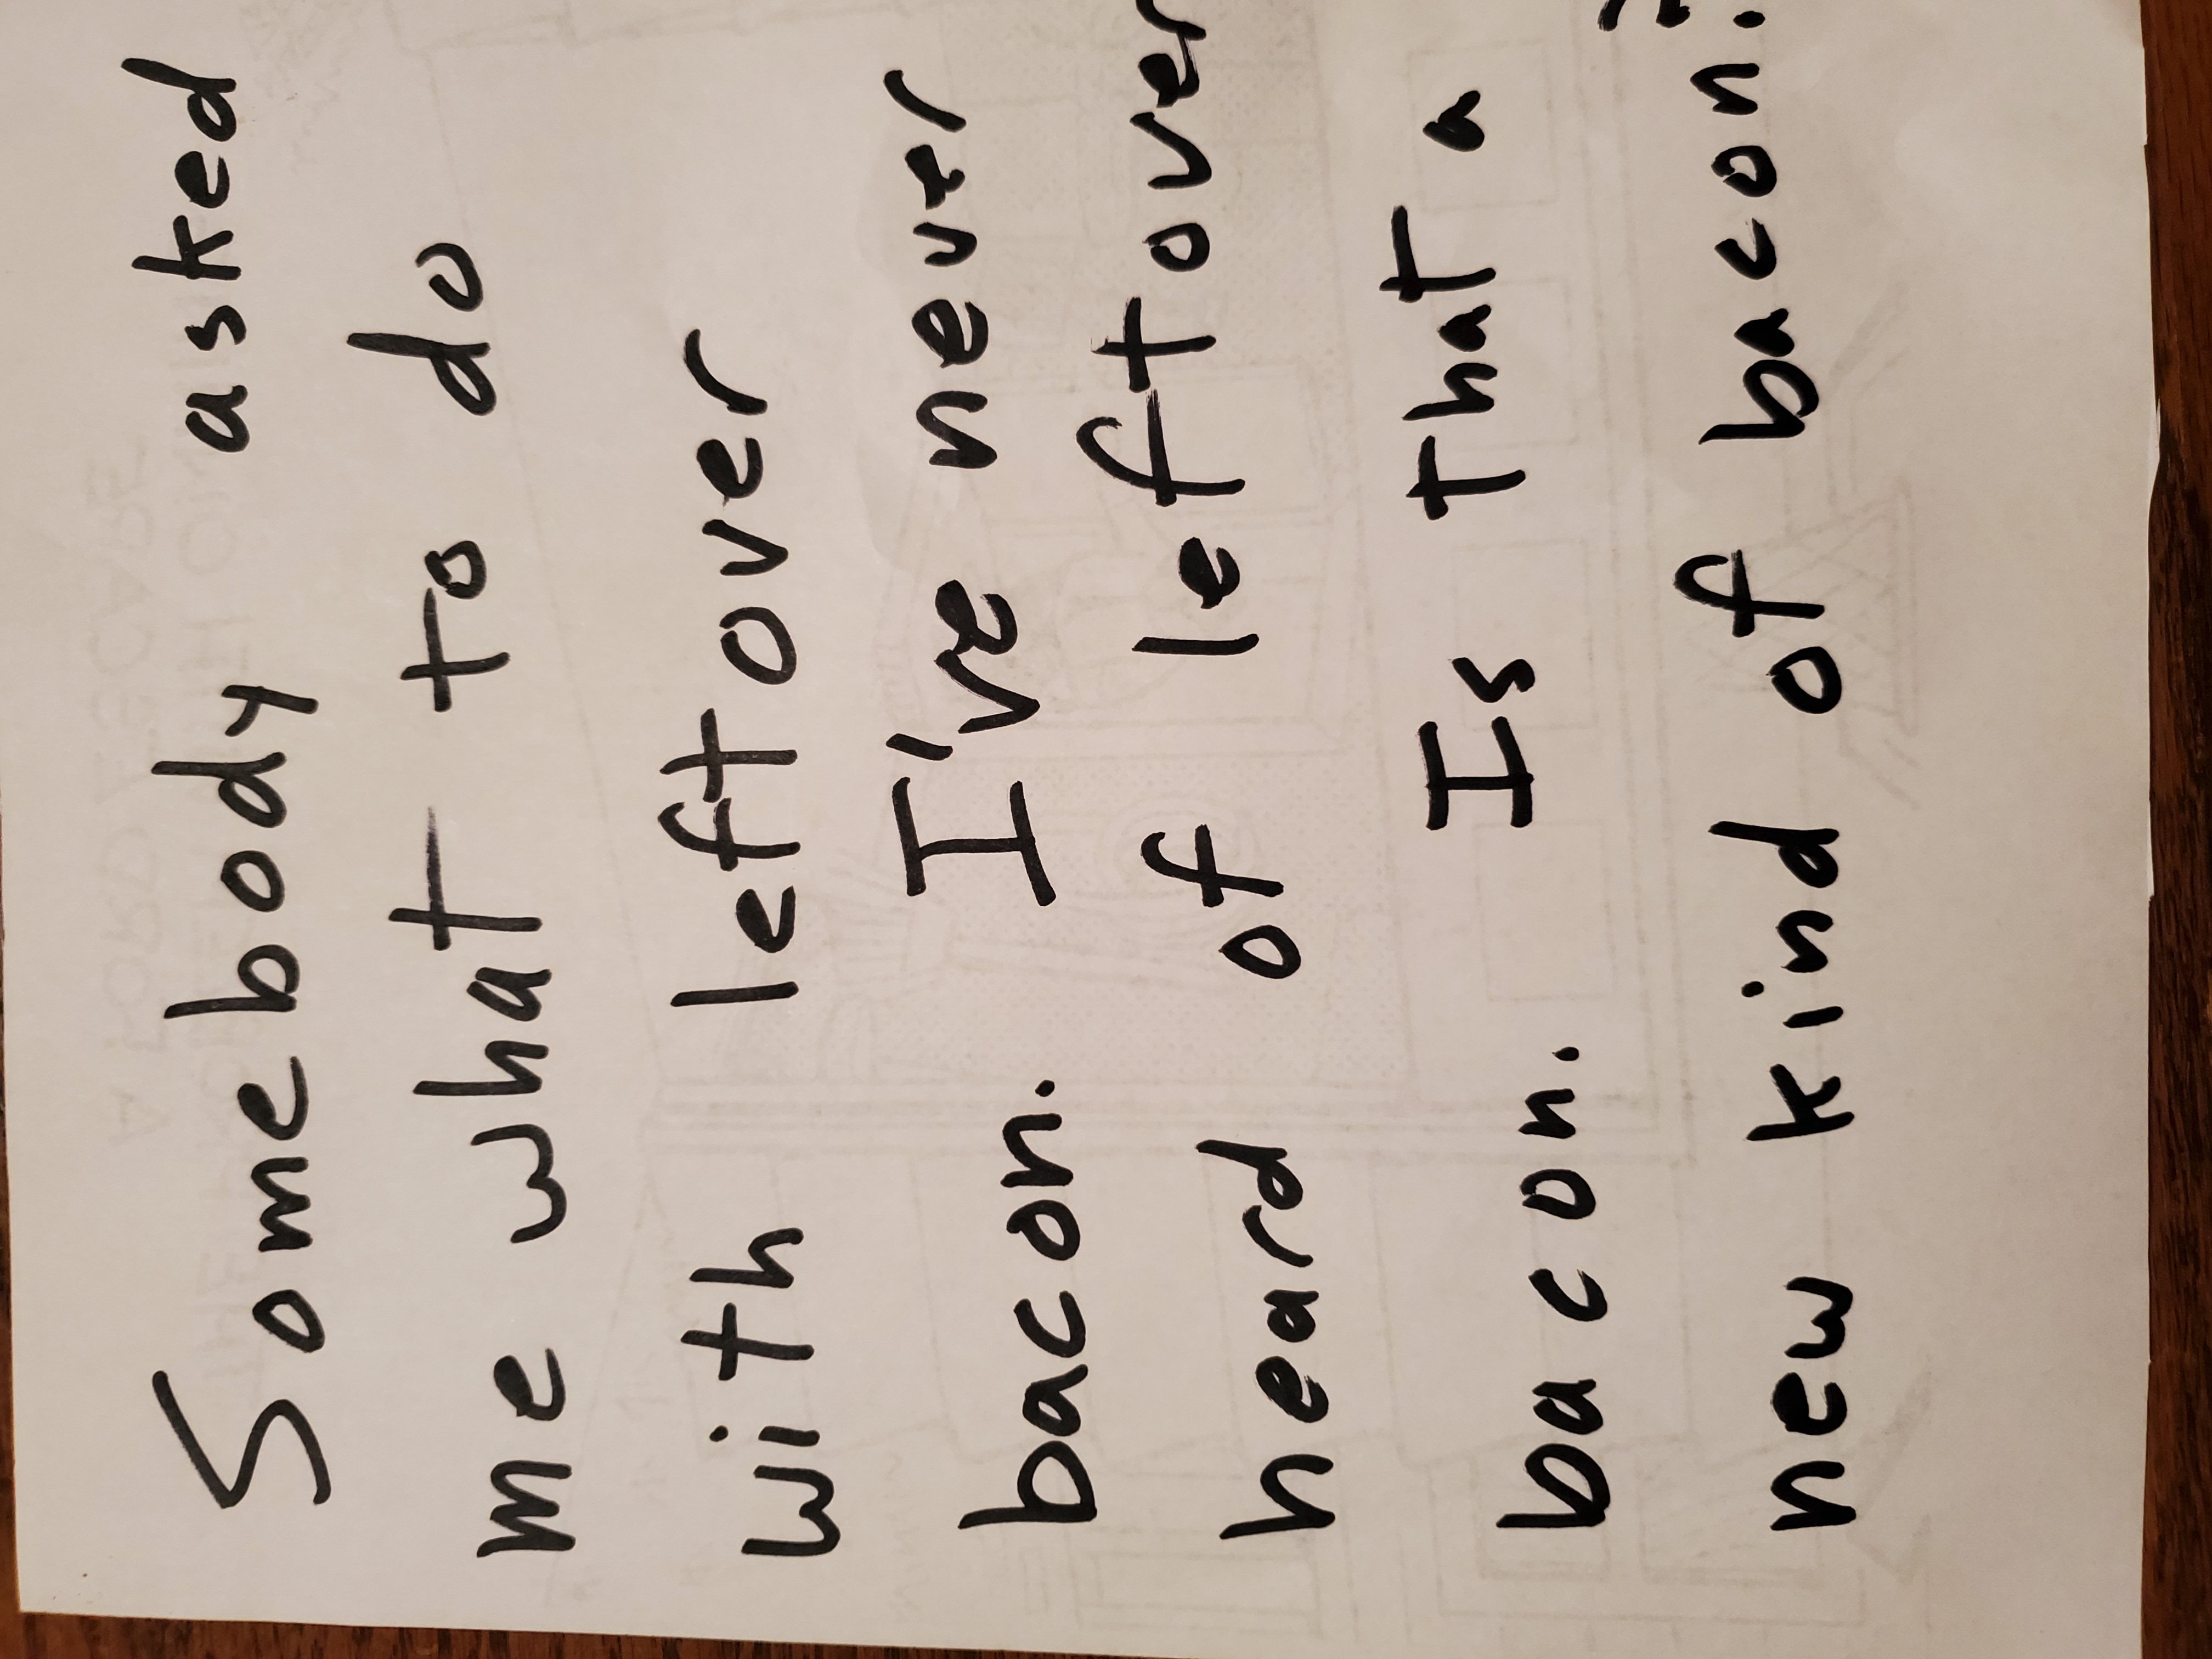 Somebody asked
me what to do
with leftover
bacon. I've never
heard of leftover
bacon. Is that a
new kind of bacon?